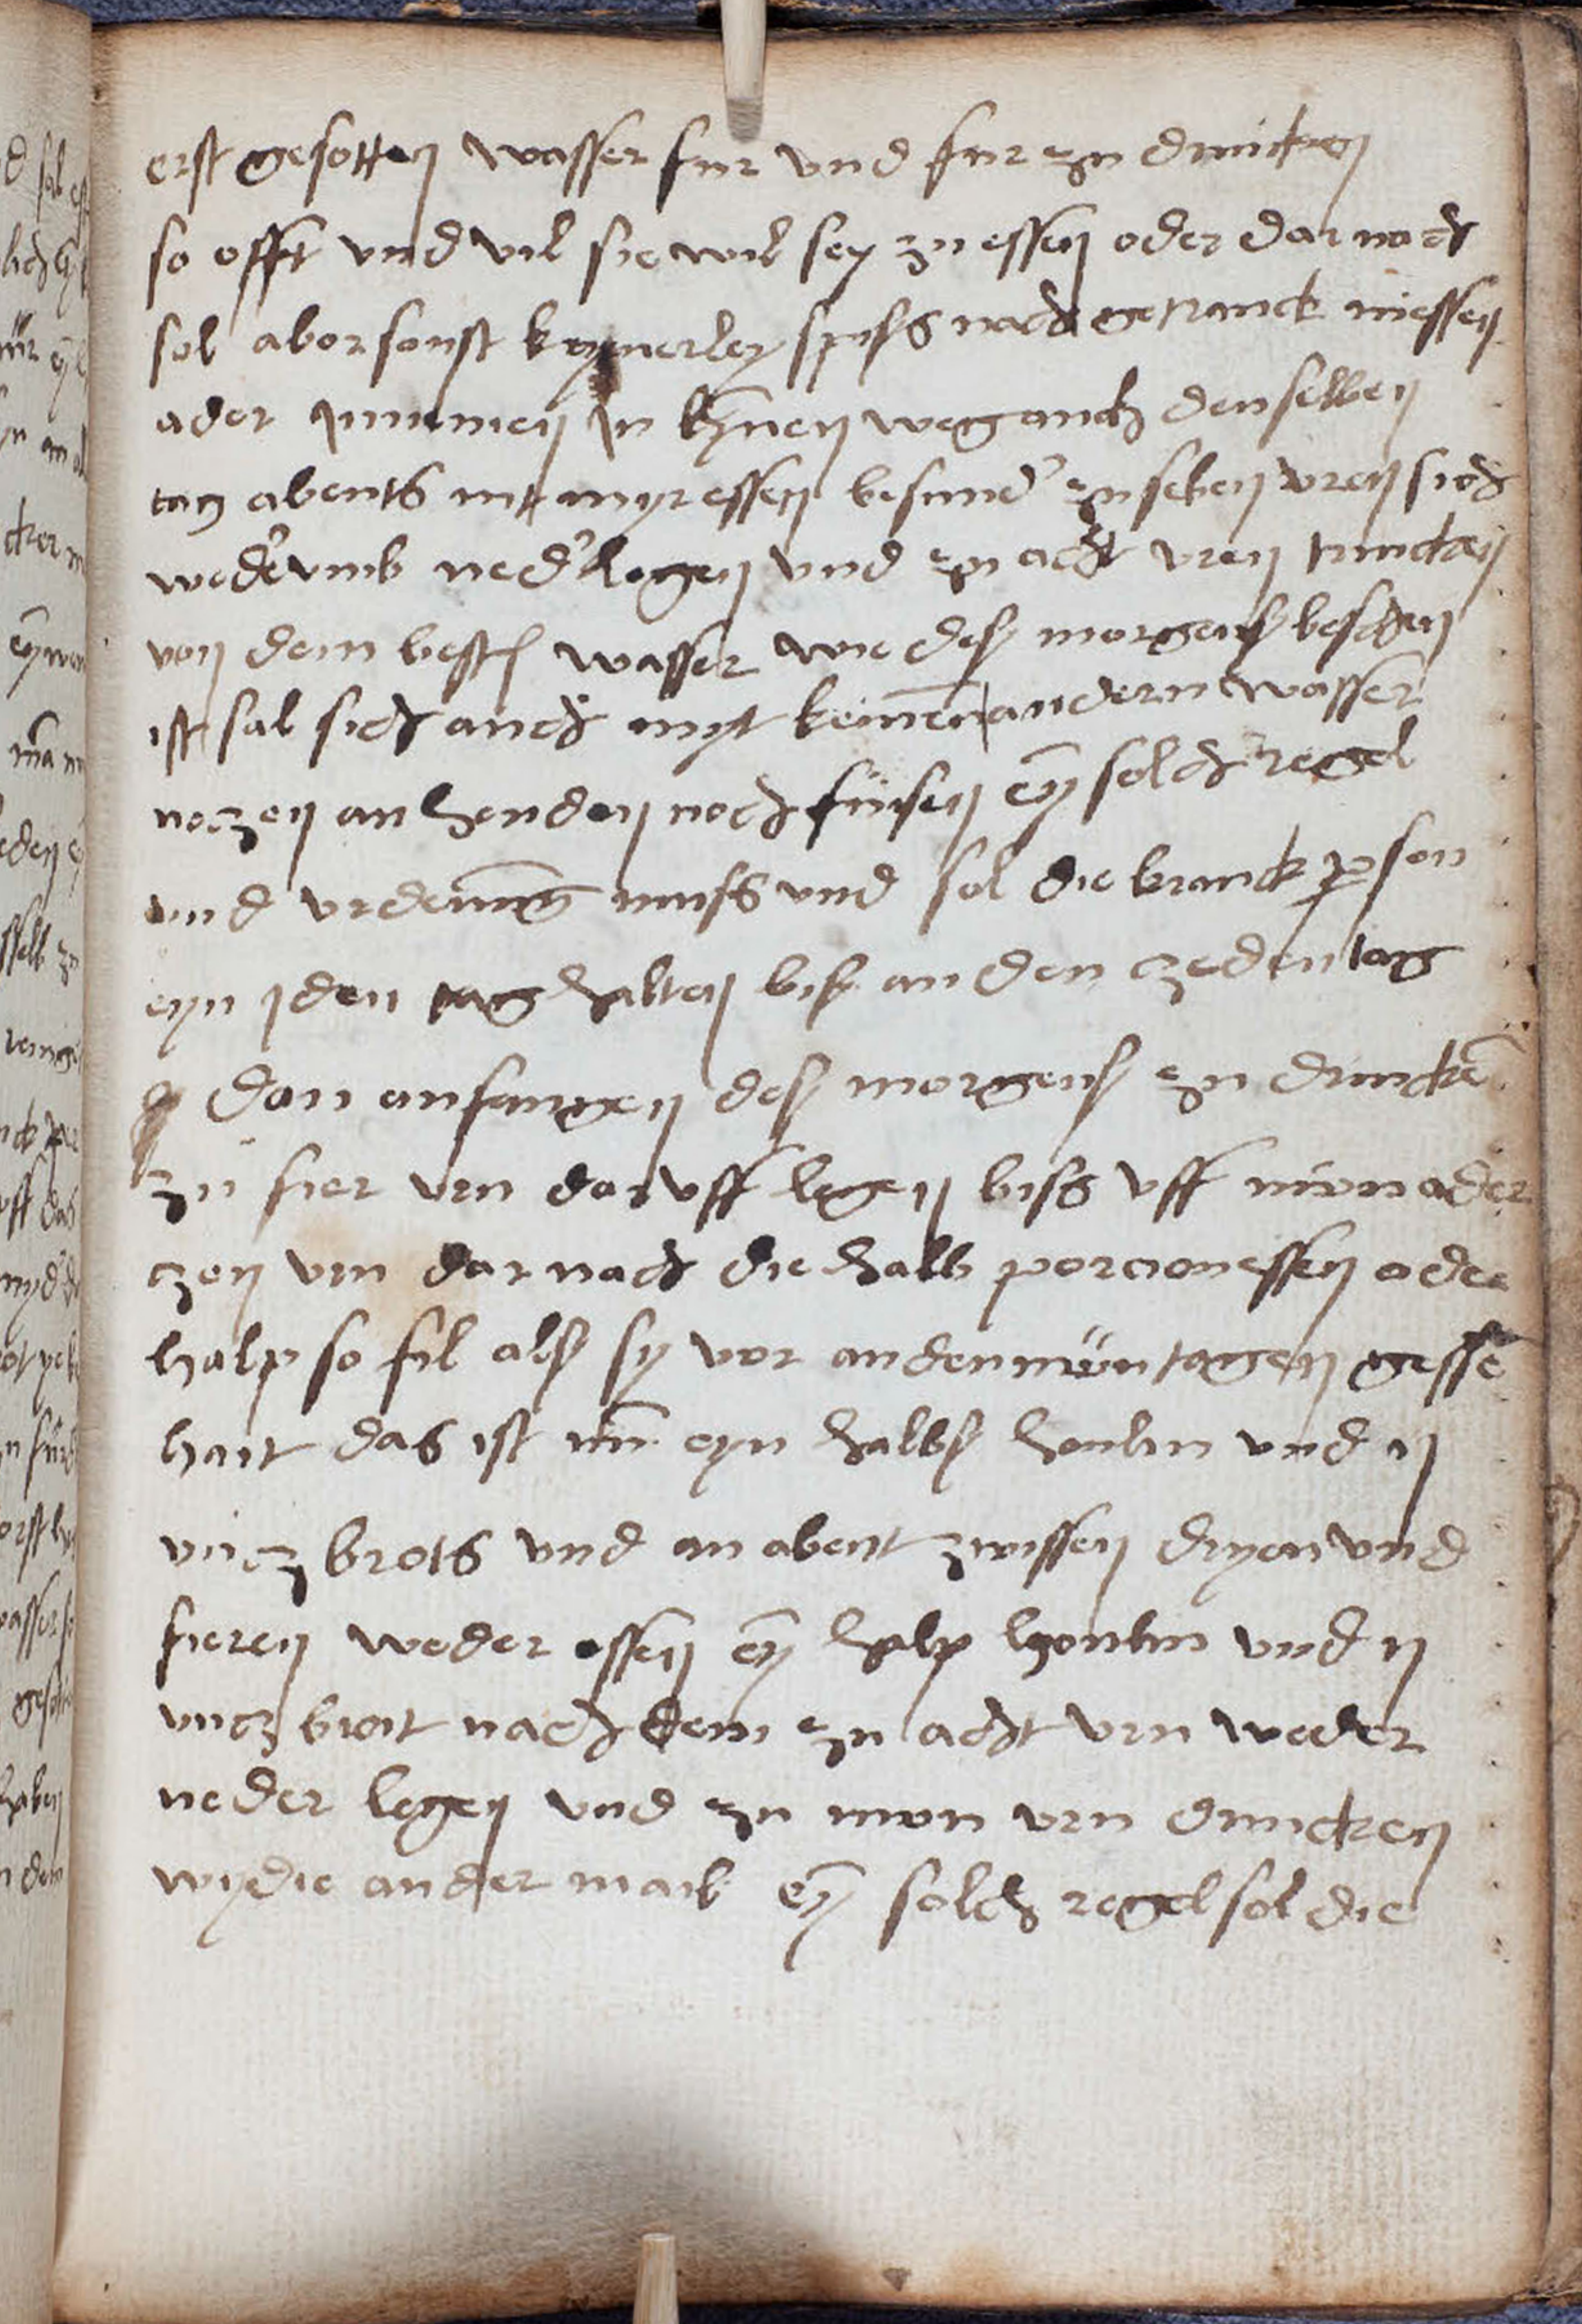 erst gesotten wasser fur und fur zu drincken
so offt vnd vil sie wil sey zu essen oder dar nach
sol aber sonst keynerley spiss nach getranck niessen
ader innemen in keynen weg auch den selben
tag abents nit myr essen besund' zu seben vren sich
wed'vmb ned' legen vnd zu acht vren trincken
von dem best wasser wie des morgens beschen
ist sal sich auch myt keinen andern wasser
neczen an henden noch füssen eyn solch regel
vnd vrdenung muss vnd sol die kranck pson
eyn iden tag halten bis an den czeden tag
dan anfangen des morgens zu drincke
zu fier vrn dar vff legen biss vff niwn ader
czen vrn dar nach die halb porcion essen oder
halp so fil als sy vor an den nün tagen gesse
hait das ist nun eyn halbs honlin vnd ij
vncz brots vnd an abent zwissen dryen vnd
fieren weder essen eyn halp honlin vnd ij
vncz broit nach dem zu acht vrn weder
neder legen vnd zu niwn vrn drincken
wy die ander maill eyn solch regel sol die